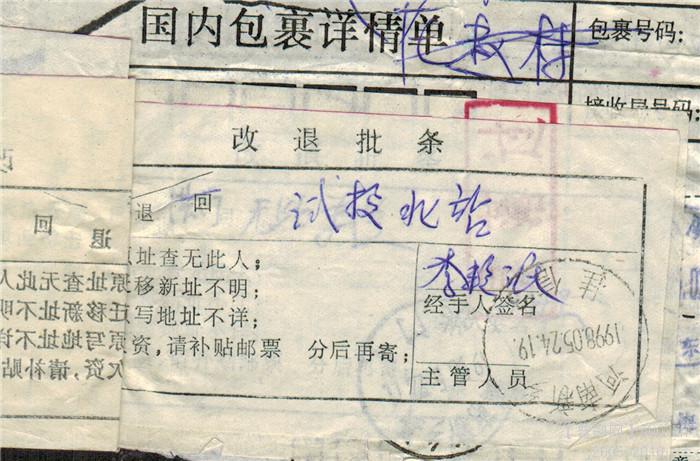 国内包裹详情单
包裹号码:
接收局号码:
改退批条
退 回 试投北站
址查无此人;
移新址不明;
写地址不详;
资,请补贴邮票 分后再寄;
经手人签名
主管人员
1998.05.24.19
河南新
退 回
原址查无此人
迁移新址不明
原写地址不详
欠资,请补贴